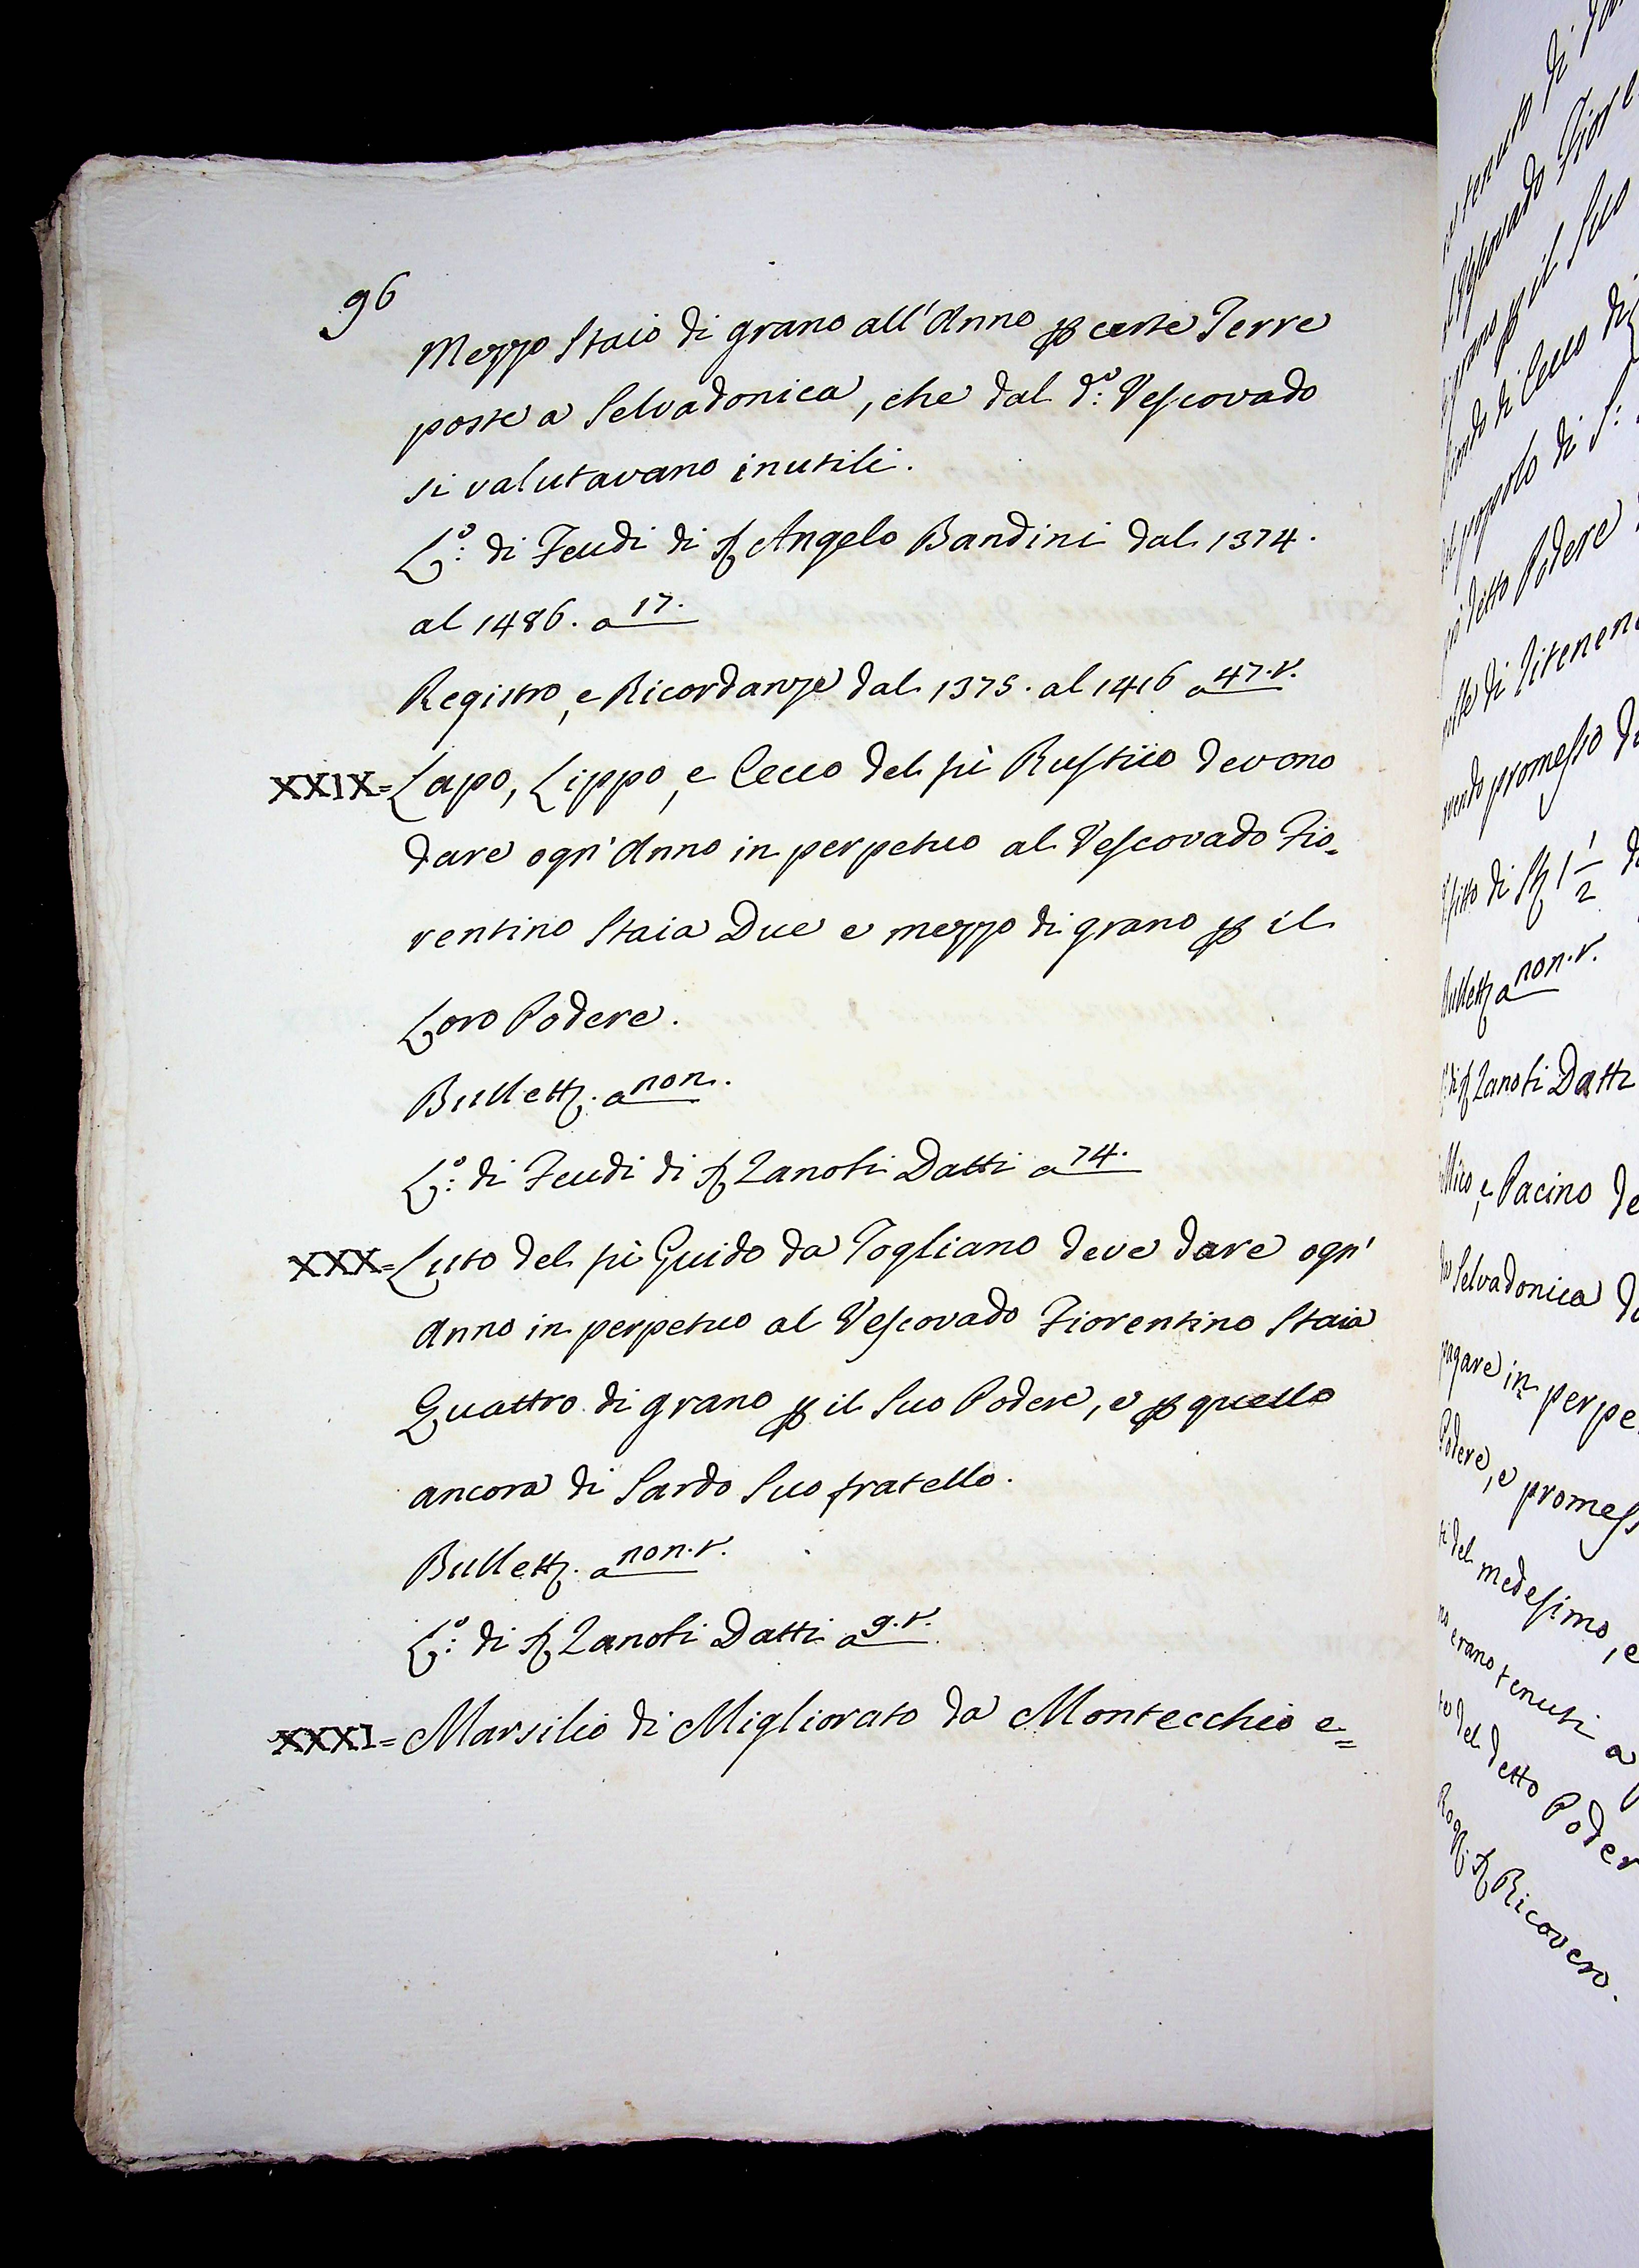 96
Mezzo Staio di grano all'Anno p certe Terre
poste a Selvadonica, che dal d.º Vescovado
si valutavano inutili.
L.º di Feudi di S. Angelo Bandini dal 1374.
al 1486. a 17.
Registro, e Ricordanze dal 1375. al 1416 a 47.v.
XXIX= Lapo, Lippo, e Cecco del fù Rustico devono
dare ogn'Anno in perpetuo al Vescovado Fio-
rentino Staia Due e mezzo di grano p il
Loro Podere.
Bullett. a non.
L.º di Feudi di S. Zanobi Datti a 74.
XXX= Luto del fù Guido da Pogliano deve dare ogn'
Anno in perpetuo al Vescovado Fiorentino Staia
Quattro di grano p il Suo Podere, e p quello
ancora di Sardo Suo fratello.
Bullett. a non.v.
L.º di S. Zanobi Datti a 9.v.
XXXI= Marsilio di Migliorato da Montecchio e=
grano p il Suo
di Cecco di
popolo di S:
detto Podere
di
promesso
di St 1 1/2
Bullett a non.v.
Zanobi Datti
e Pacino
Selvadonica
pagare in perpe
Podere, e promess
del medesimo, e
erano tenuti a
del detto Poder
Rog. S. Ricovero.